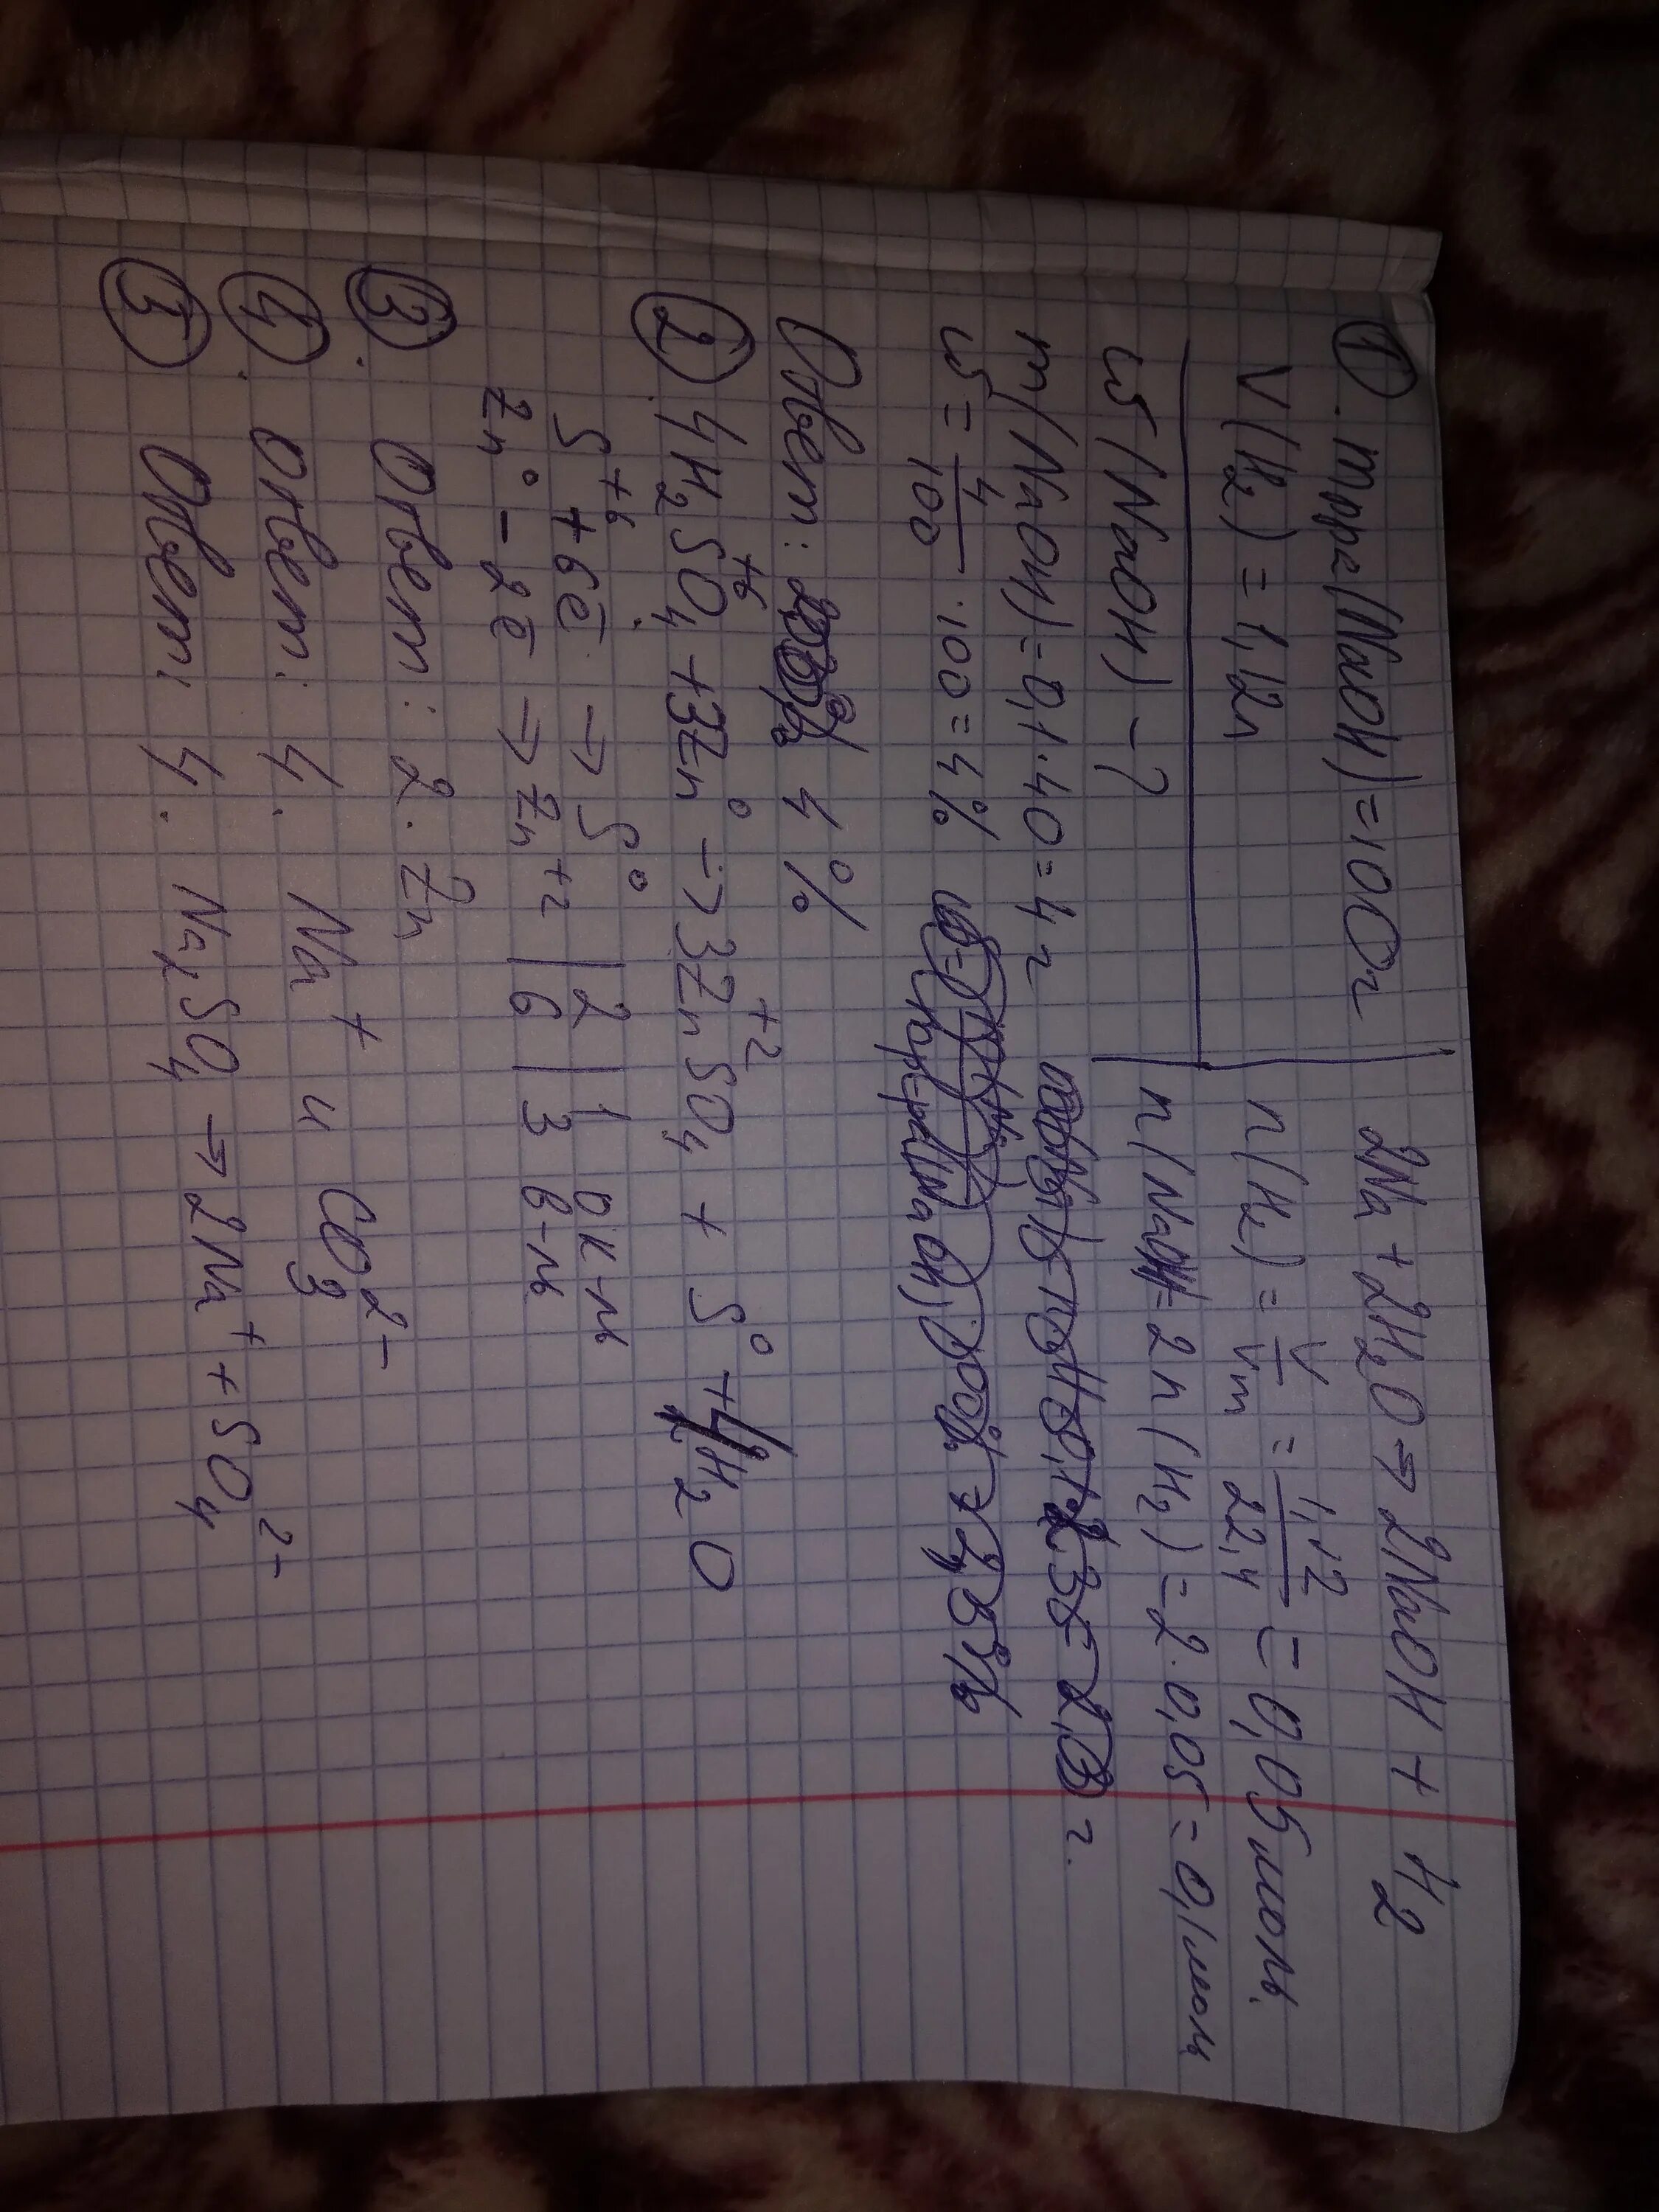 ① mр-ра(NaOH)=100г
V(H₂)=1,12л
ω(NaOH)-?
2Na+2H₂O→2NaOH+H₂
n(H₂)=V/Vm=1,12/22,4=0,05моль.
n(NaOH)=2n(H₂)=2·0,05=0,1моль
m(NaOH)=0,1·40=4г
ω=4/100·100=4%
Ответ: 4%
② 4H₂S⁺⁶O₄+3Zn⁰→3Zn⁺²SO₄+S⁰+4H₂O
S⁺⁶+6ē→S⁰|2|1 ок-ль
Zn⁰-2ē→Zn⁺²|6|3 в-ль
③. Ответ: 2. Zn
④. Ответ: 4. Na⁺ и CO₃²⁻
⑤ Ответ: 4. Na₂SO₄→2Na⁺+SO₄²⁻